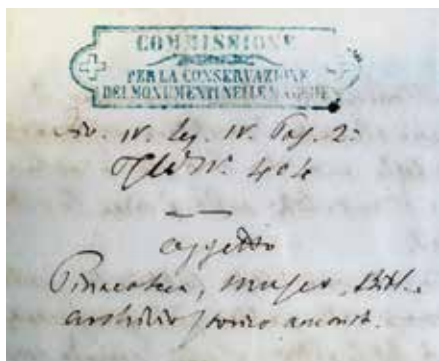 COMMISSIONE
PER LA CONSERVAZIONE
DEI MONUMENTI NELLE MARCHE
Div. IV. Leg. IV. Pos. 2
N. 404
oggetto
Pinacoteca, museo, Bibl.
archivio storico anconit.